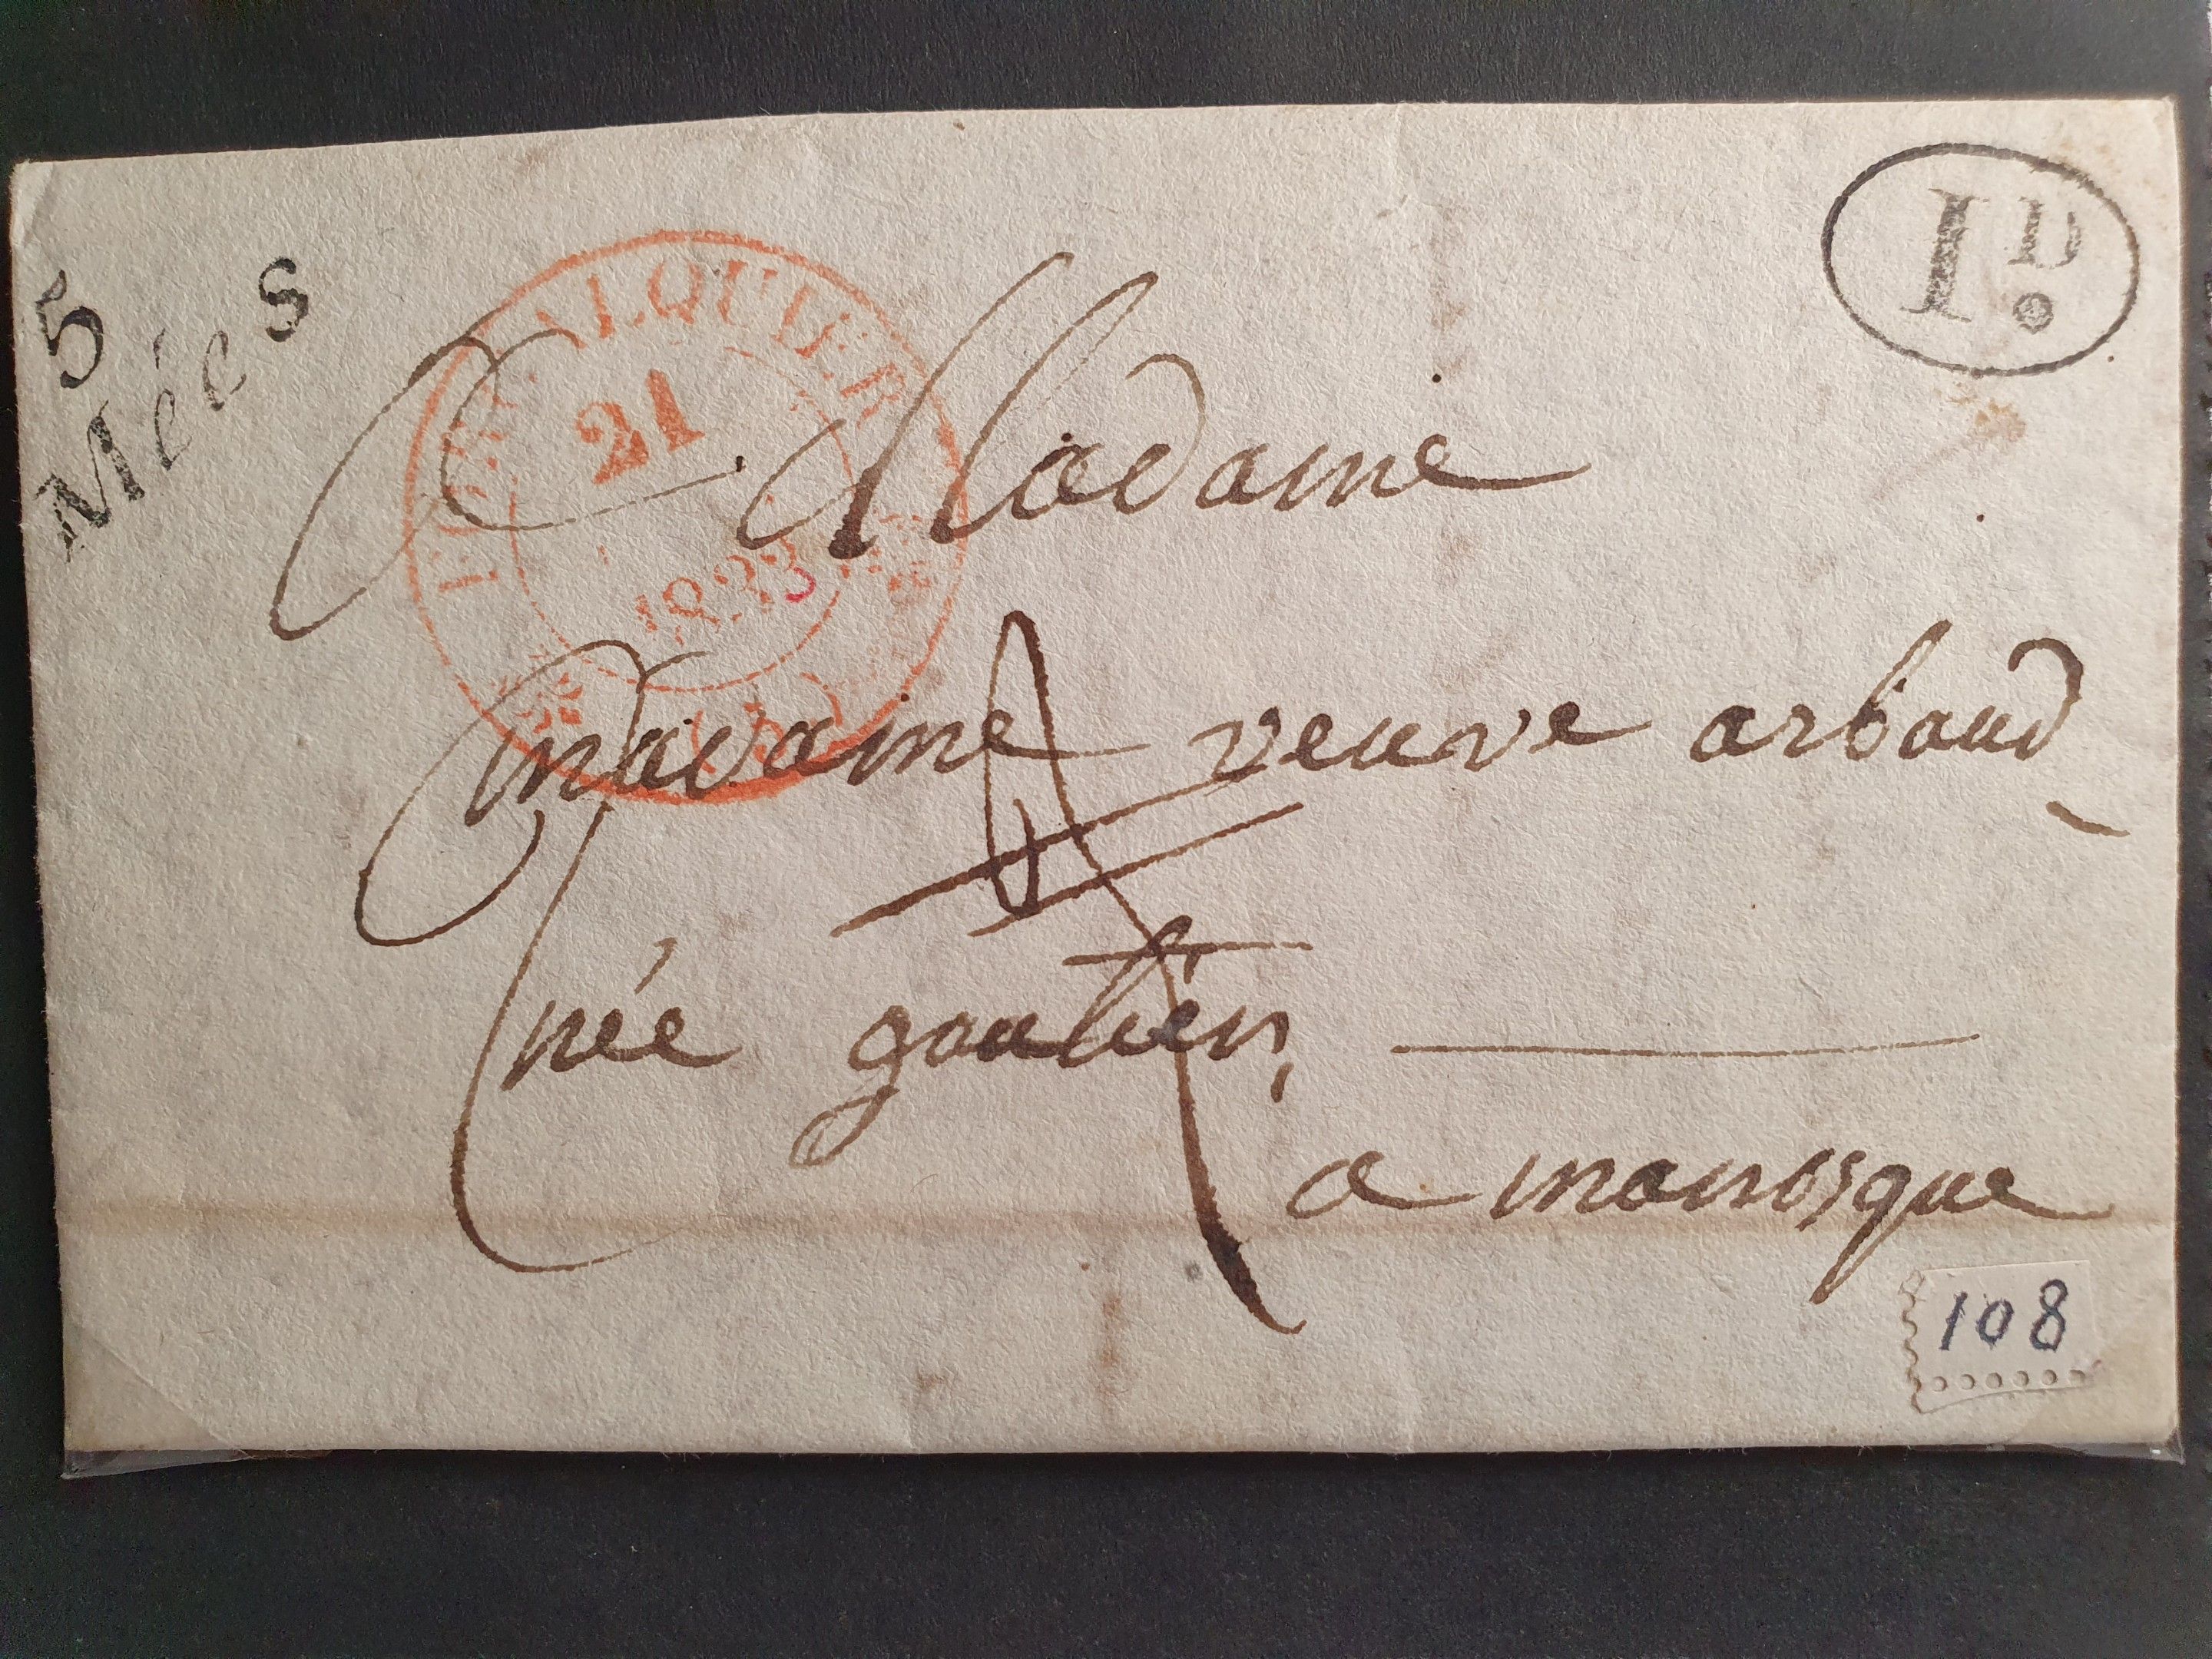 5
Mées
FORCALQUIER
21
1833
1D.
A Madame
madame veuve arbaud
née gautier,
a manosque
108